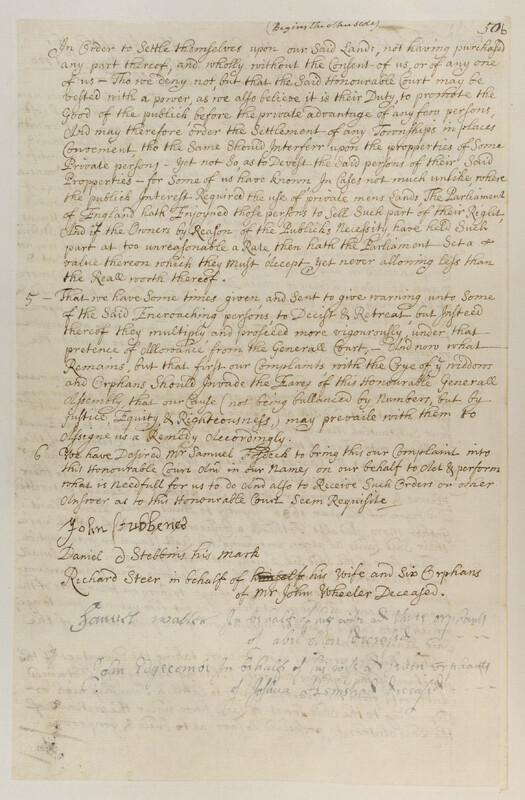 (Begins the other side)
506
In Order to Settle themselves upon our Said Lands, not having purchased
any part thereof, and wholly without the Consent of us, or of any one
of us — Tho we deny not, but that the Said Honourable Court may be
vested with a power, as we also believe it is their Duty, to promote the
Good of the publick before the private advantage of any few persons,
And may therefore order the Settlement of any Townships in places
Convenient tho the Same Should Interferr upon the propperties of Some
Private persons — yet not So as to Devest the Said persons of their Said
Propperties — for Some of us have known In Cases not much unlike, where
the publick Interest Required the use of private mens Lands, The Parliament
of England hath Enjoyned those persons to Sell Such part of their Right,
And if the Owners by Reason of the Publicks Necessity have held Such
part at too unreasonable a Rate then hath the Parliament Set a
value thereon which they Must Accept, yet never allowing less than
the Reall worth thereof.
5 — That we have Some times given and Sent to give warning unto Some
of the Said Encroaching persons to Decist & Retreat but Insteed
thereof they multiply and proceed more vigorously, under that
pretence of Allowance from the Generall Court, — And now what
Remains, but that first our Complaints with the Crye of ye widdows
and Orphans Should Invade the Eares of this Honourable Generall
Assembly that our Cause (not being ballanced by Numbers, but by
Justice, Equity, & Righteousness,) may prevaile with them to
Assigne us a Remedy Accordingly.
6 We have Desired Mr Samuel to bring this our Complaint into
this Honourable Court And in our Names on our behalf to Act & perform
what is needfull for us to do And also to Receive Such Orders or other
Answer as to this Honourable Court Seem Requisite
John
Daniel D Stebbins his mark
Richard Steer in behalf of himself his Wife and Six Orphans
of Mr John Wheeler Deceased.
Samuel In behalf of his wife and three orphants
of Deceased
John Edgecomb In behalf of his wife & orphants
of Joshua Hemsted Deceased